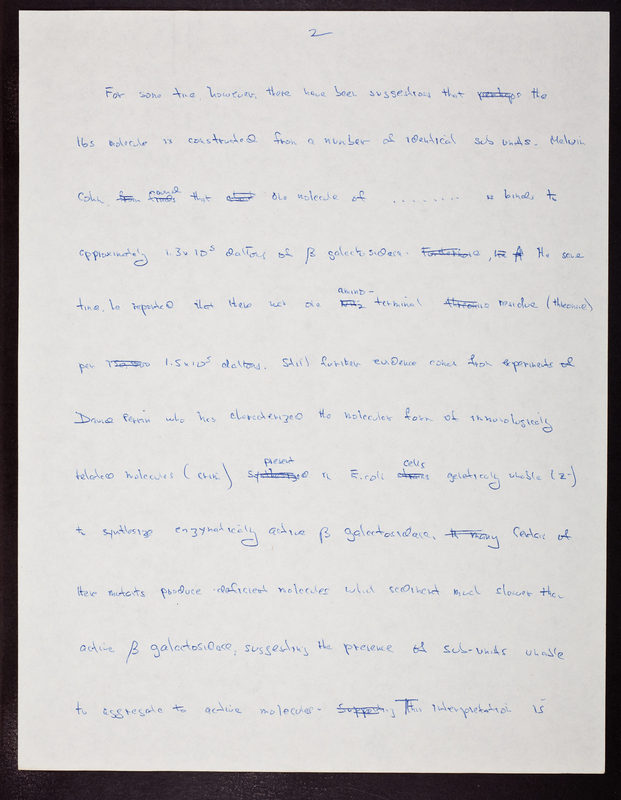 2
For some time, however, there have been suggestions that perhaps the
16s molecule is constructed from a number of identical sub units. Melvin
Cohn from finds found that one molecule of ........ binds to
approximately 1.3 x 10^5 daltons of β galactosidase. Furthermore, At the same
time, he reported that there was one NH2 amino- terminal threonine residue (threonine)
per 150,000 1.5 x 10^5 daltons. Still further evidence comes from experiments of
David Perrin who has characterized the molecular form of immunologically
related molecules (CRM) synthesized present in E. coli strains cells genetically unable (z-)
to synthesize enzymatically active β galactosidase. Certain of
these mutants produce deficient molecules which sediment much slower than
active β galactosidase, suggesting the presence of sub-units unable
to aggregate to active molecules. Supporting This interpretation is